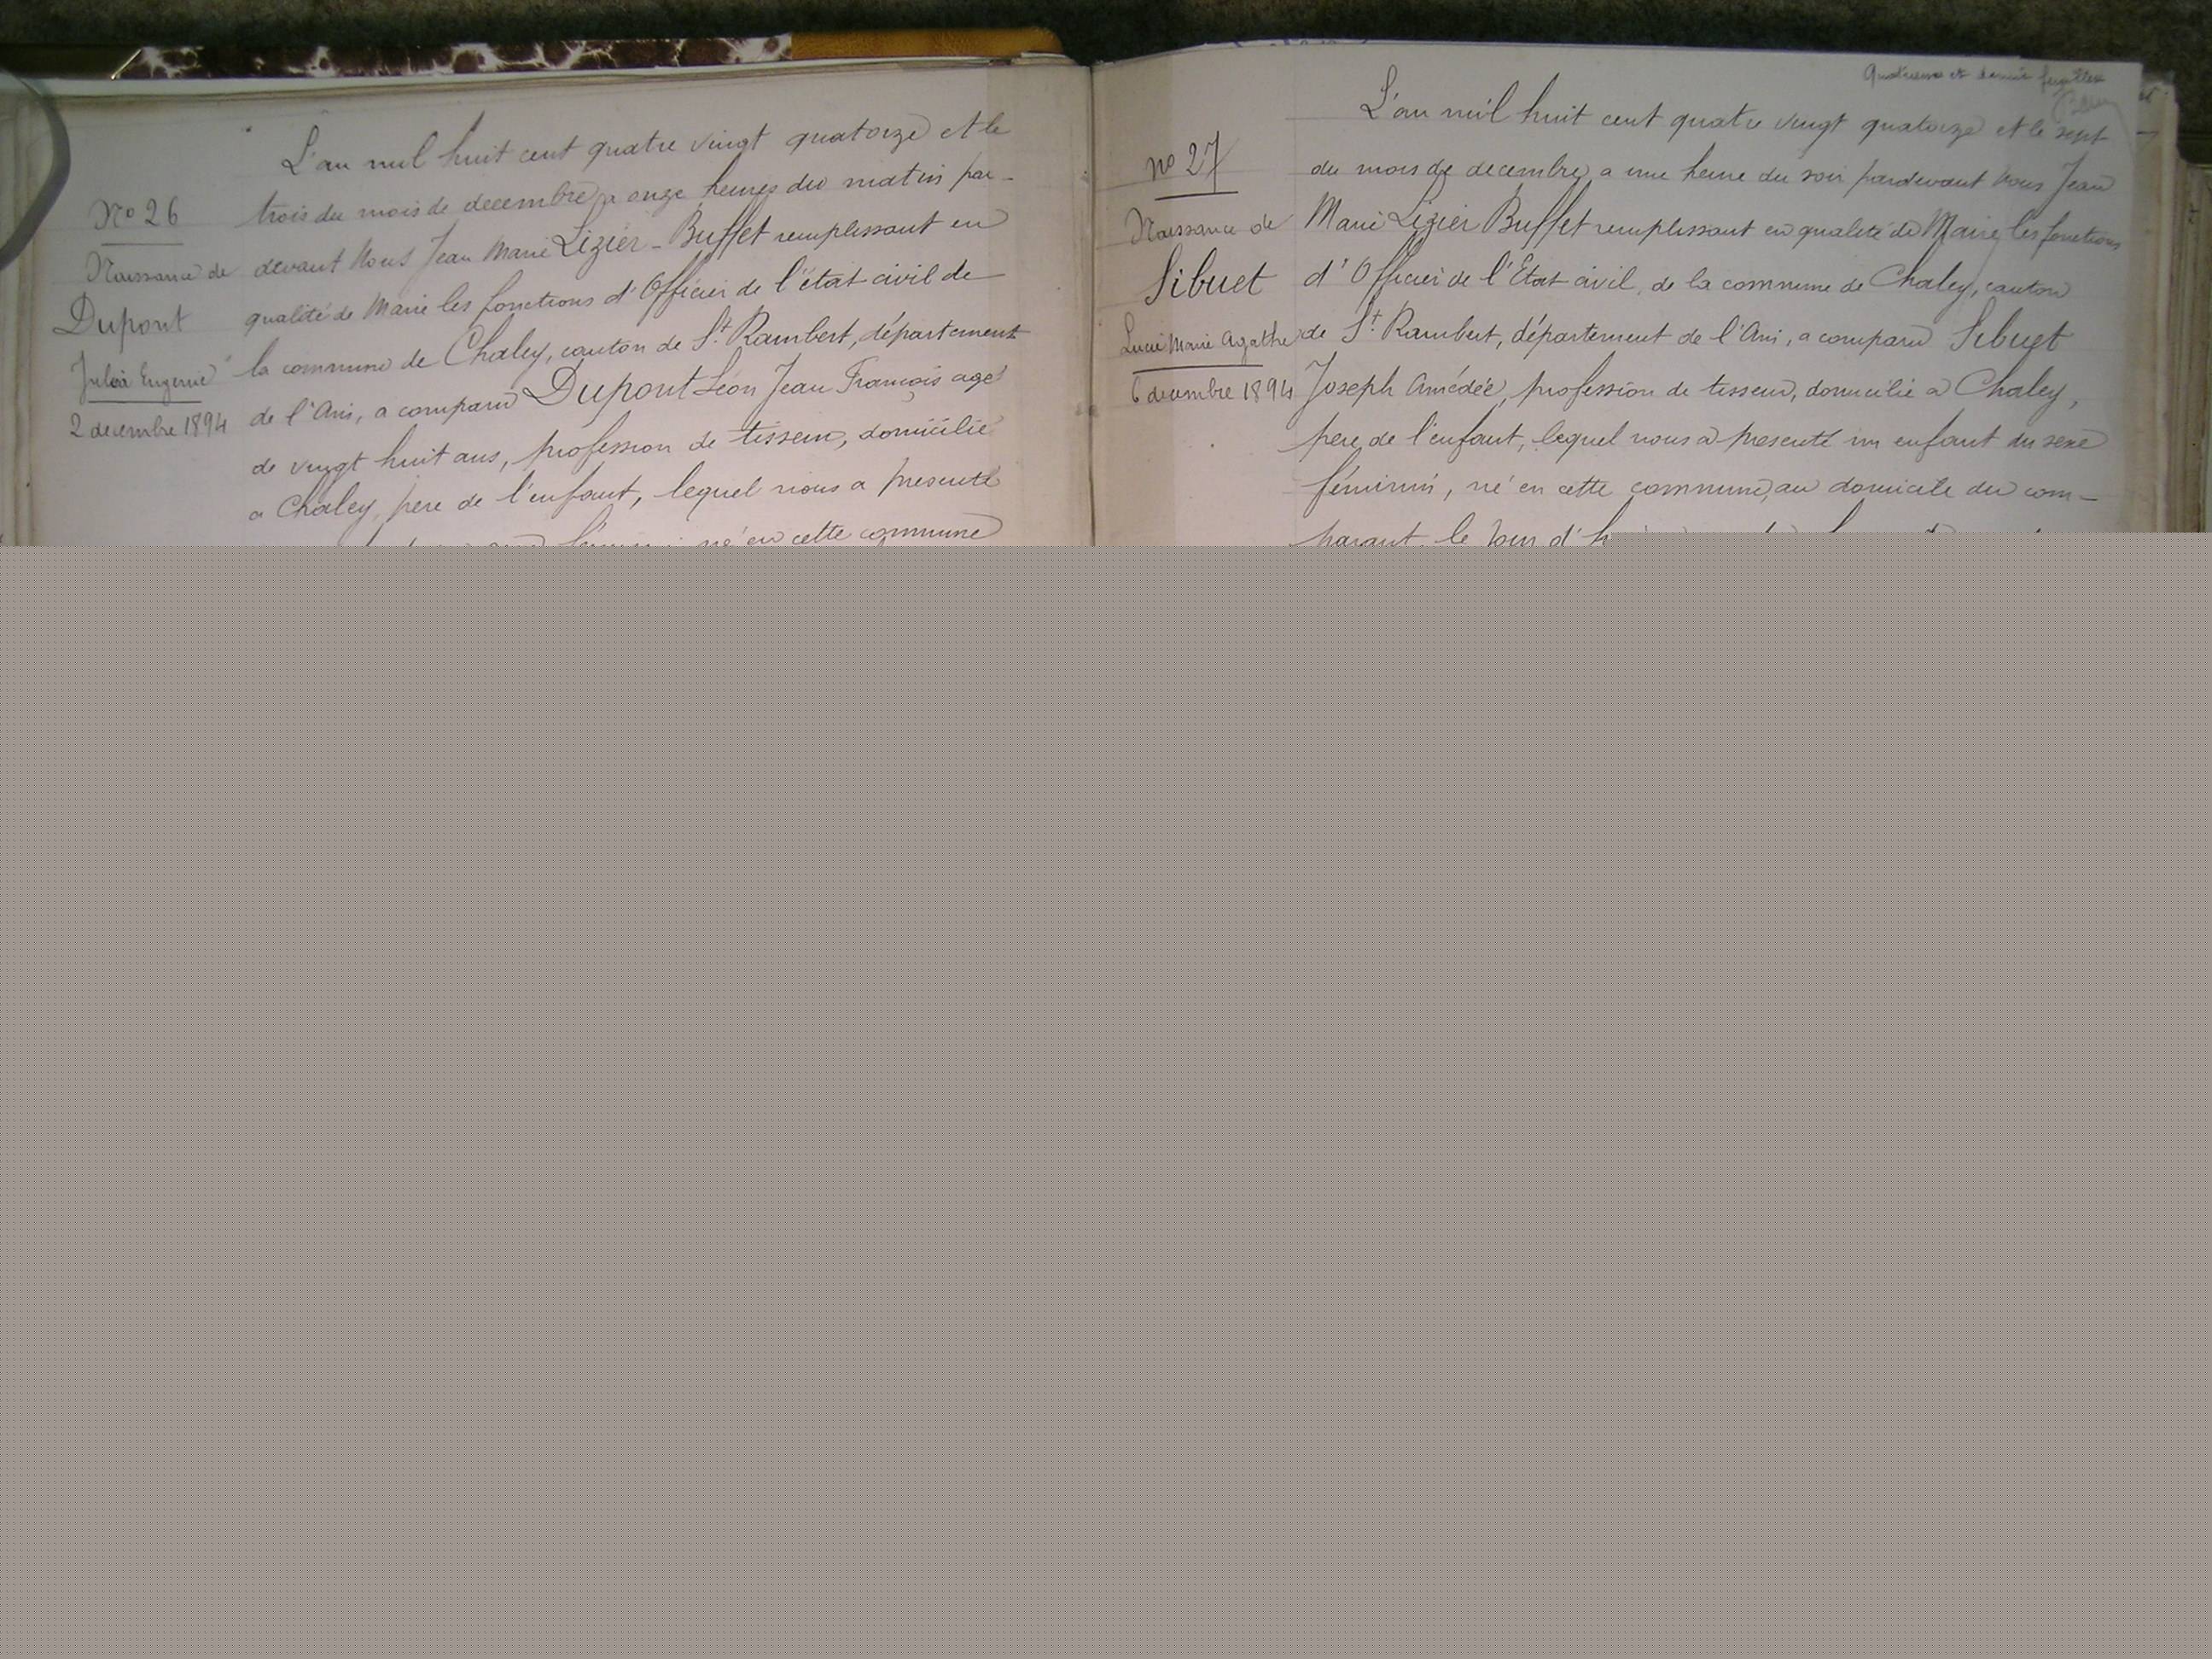 L'an mil huit cent quatre vingt quatorze et le
trois du mois de decembre, a onze heures du matin par-
devant Nous Jean Marie Lizier-Buffet remplissant en
qualité de Maire les fonctions d'Officier de l'état civil de
la commune de Chaley, canton de St. Rambert, département
de l'Ain, a comparu Dupont Léon Jean François agé
de vingt huit ans, profession de tisseur, domicilié
a Chaley, père de l'enfant, lequel nous a presenté
féminin né en cette commune
No 26
Naissance de
Dupont
Julia Eugenie
2 decembre 1894
Quatrieme et dernier feuillet
L'an mil huit cent quatre vingt quatorze et le sept
du mois de decembre, a une heure du soir pardevant Nous Jean
Marie Lizier Buffet remplissant en qualité de Maire, les fonctions
d'Officier de l'Etat civil, de la commune de Chaley, canton
de St. Rambert, département de l'Ain, a comparu Sibuet
Joseph Amédée, profession de tisseur, domicilié a Chaley,
père de l'enfant, lequel nous a presenté un enfant du sexe
féminin, né en cette commune, au domicile du com-
parant, le jour d'h
No 27
Naissance de
Sibuet
Lucie Marie Agathe
6 decembre 1894